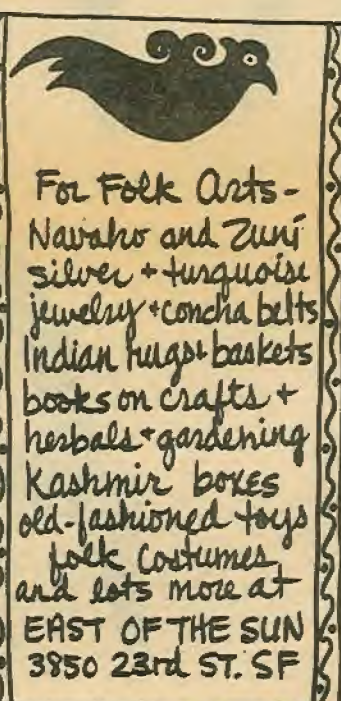 For Folk Arts-
Navaho and Zuni
silver + turquoise
jewelry + concha belts
Indian rugs + baskets
books on crafts +
herbals + gardening
Kashmir boxes
old-fashioned toys
folk costumes
and lots more at
EAST OF THE SUN
3850 23rd ST. SF